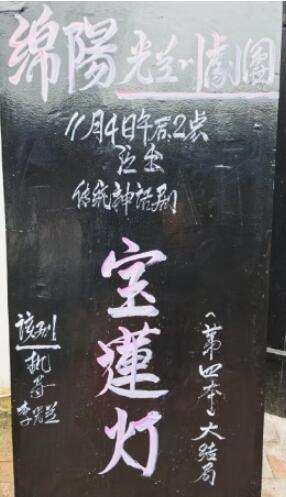 绵陽光兰川劇團
11月4日午后2点
演出
传统神话剧
宝蓮灯
(第四本)大结局
该剧
李光兰